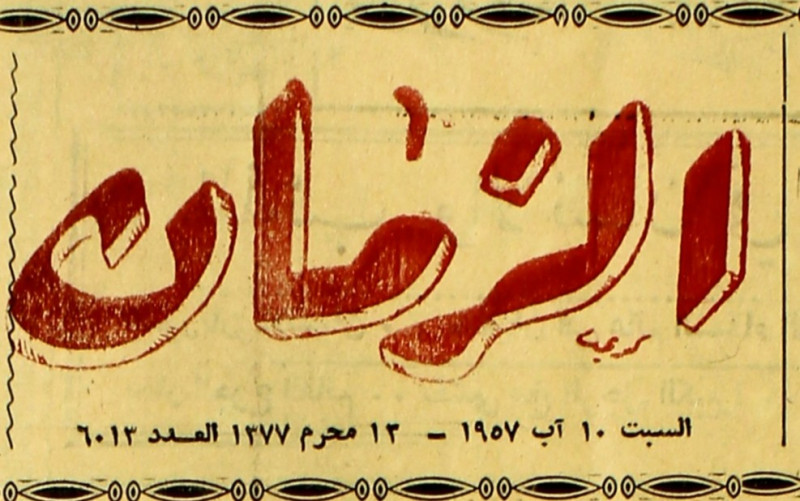 الزمان
السبت ١٠ آب ١٩٥٧ — ١٣ محرم ١٣٧٧ العدد ٦٠١٣